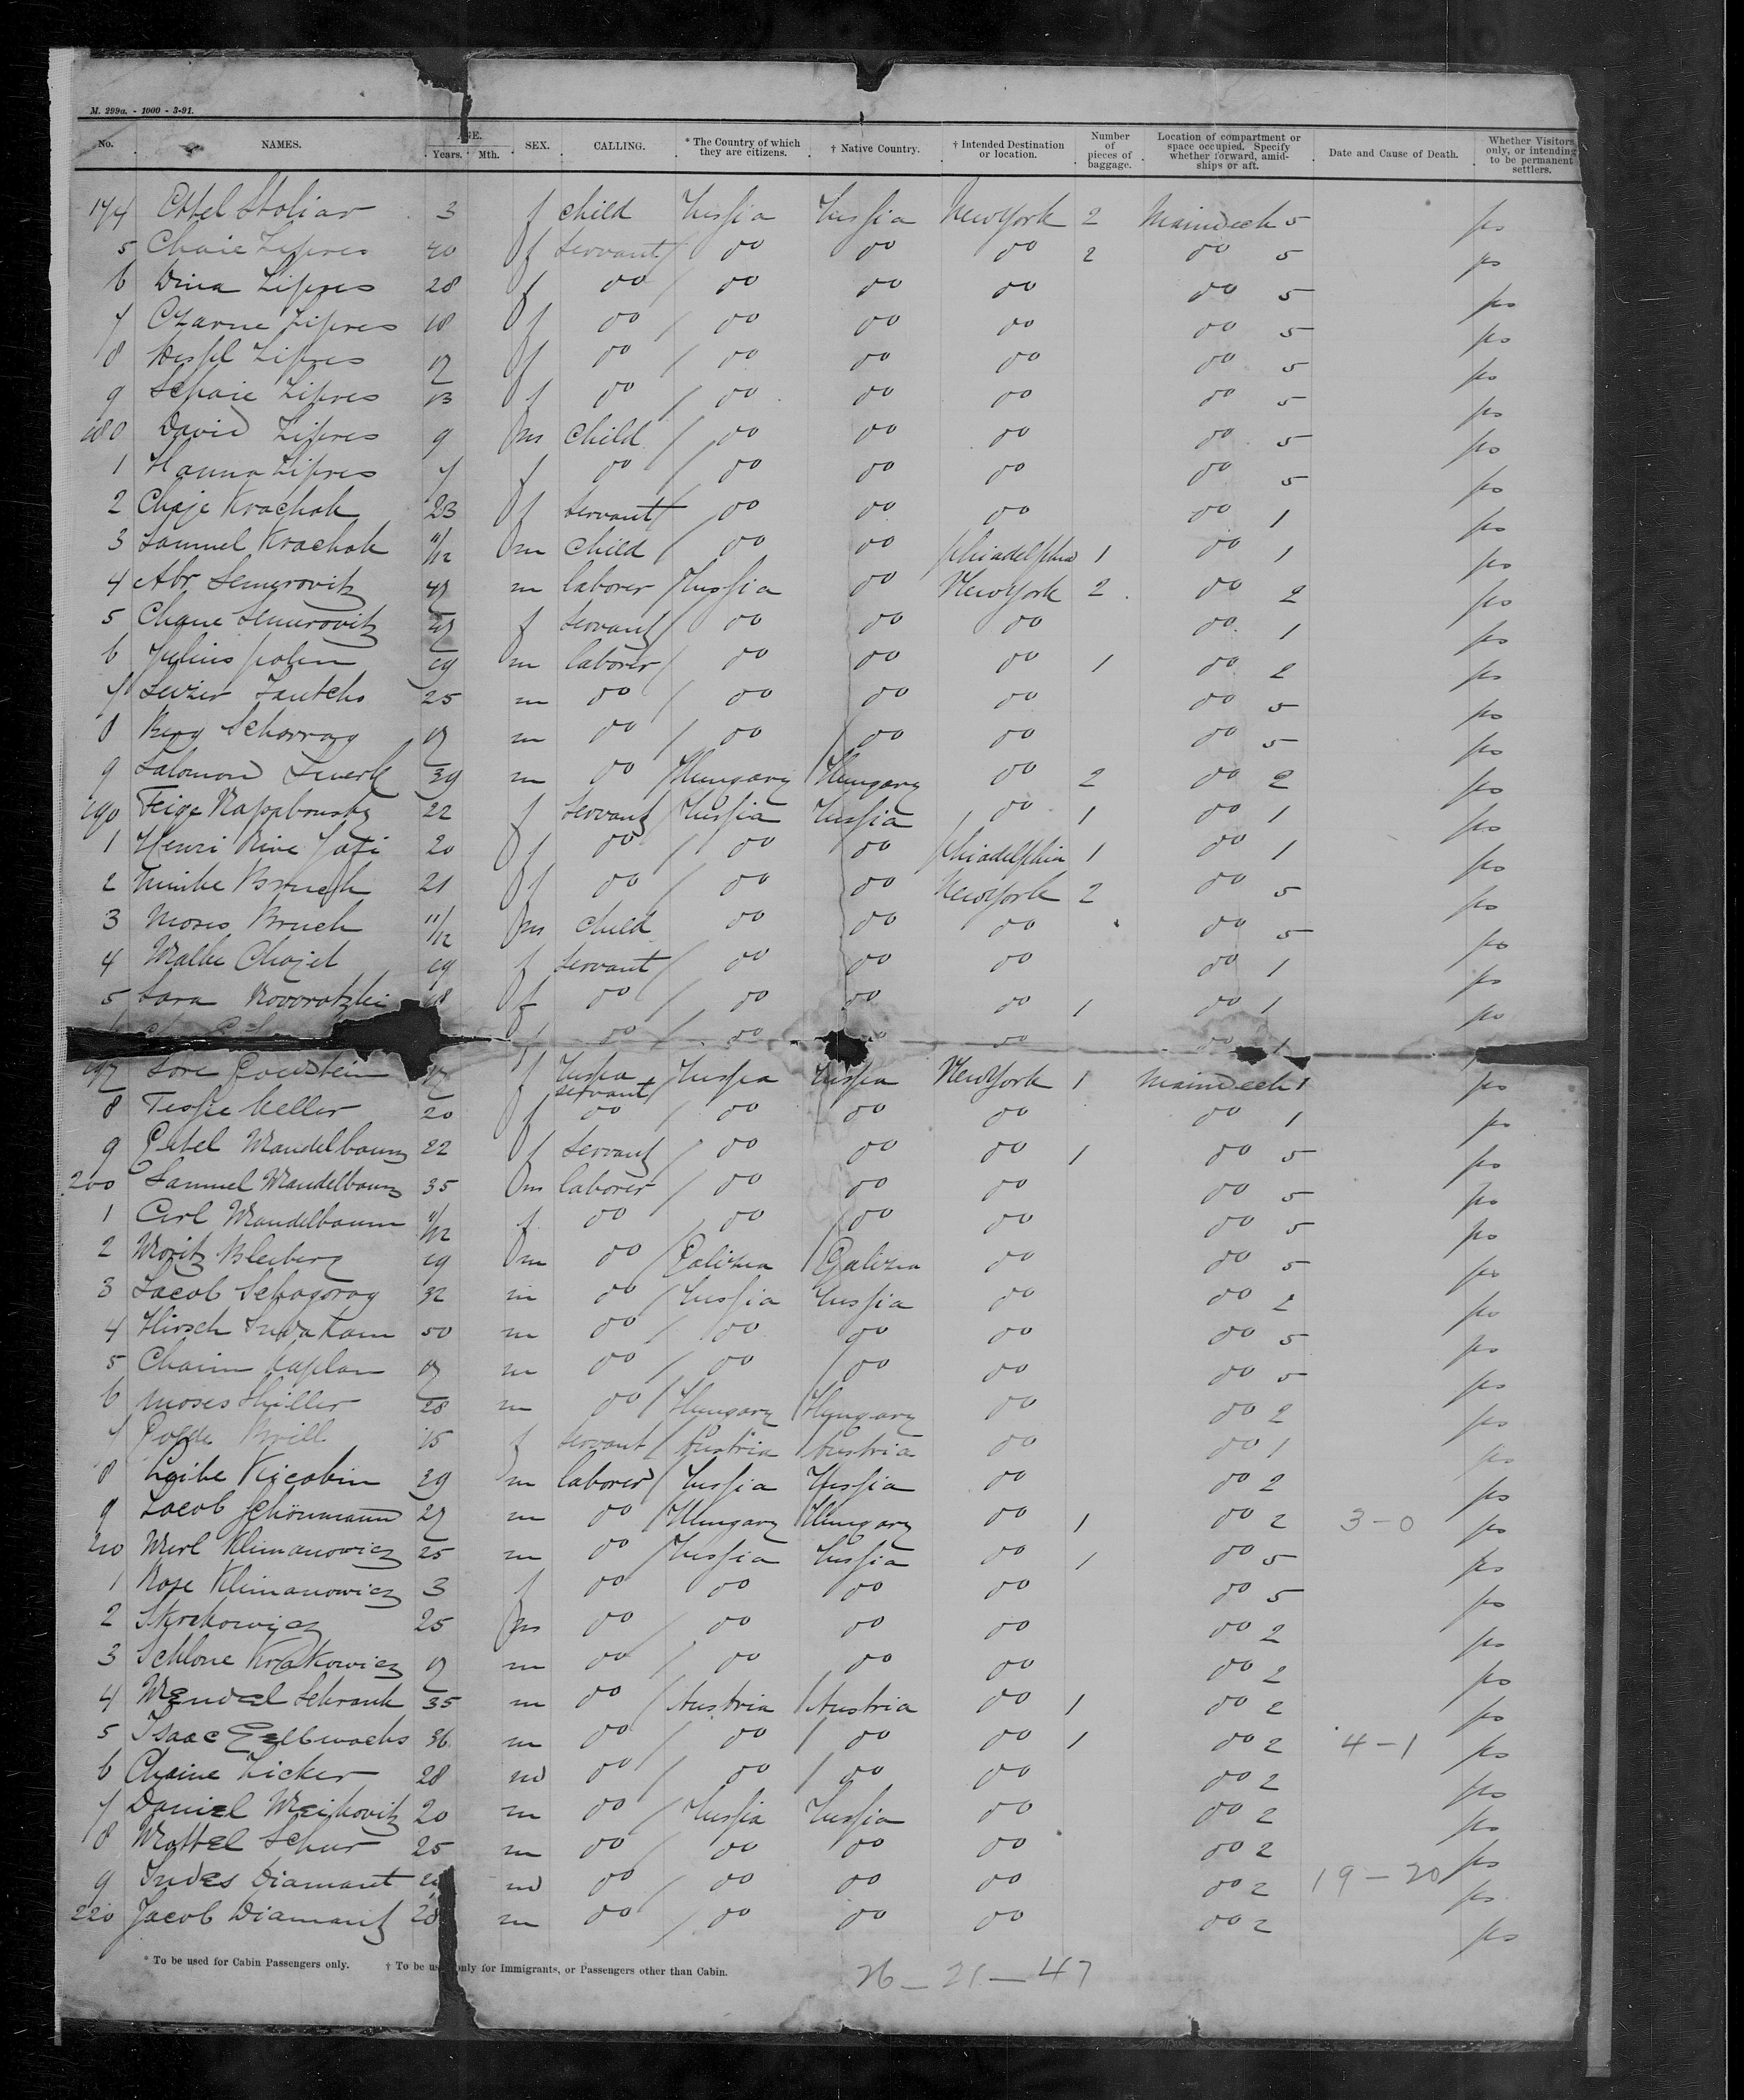 M. 299a. - 1000 - 3-91.
No. NAMES. AGE. Years. Mth. SEX. CALLING. * The Country of which they are citizens. † Native Country. † Intended Destination or location. Number of pieces of baggage. Location of compartment or space occupied. Specify whether forward, amidships or aft. Date and Cause of Death. Whether Visitors only, or intending to be permanent settlers.
174 Estel Stoliar 3 f child Russia Russia New York 2 Maindeck 5 ps
5 Chaie Lipres 40 f servant do do do 2 do 5 ps
6 Dina Lipres 28 f do do do do do 5 ps
7 Czarne Lipres 18 f do do do do do 5 ps
8 Lipres 17 f do do do do do 5 ps
9 Lipres 13 f do do do do do 5 ps
180 David Lipres 9 m child do do do do 5 ps
1 Hanna Lipres 7 f do do do do do 5 ps
2 Chaje Krachak 23 f servant do do do do 1 ps
3 Samuel Krachak 11/12 m child do do Phiadelphia 1 do 1 ps
4 Abr 47 m laborer Russia do New York 2 do 2 ps
5 Chane 47 f servant do do do do 1 ps
6 Julius 19 m laborer do do do 1 do 2 ps
7 25 m do do do do do 5 ps
8 17 m do do do do do 5 ps
9 Salomon 39 m do Hungary Hungary do 2 do 2 ps
190 Feige 22 f servant Russia Russia do 1 do 1 ps
1 Henri Rive 20 f do do do Phiadelphia 1 do 1 ps
2 21 f do do do New York 2 do 5 ps
3 Moses Bruch 11/12 m child do do do do 5 ps
4 Malke 19 f servant do do do do 1 ps
5 Sara 18 f do do do do 1 do 1 ps
f do do do do 1
197 Sore 17 f Russia servant Russia Russia New York 1 Maindeck 1 ps
8 Tessie Keller 20 f do do do do do 1 ps
9 Estel Mandelbaum 22 f servant do do do 1 do 5 ps
200 Samuel Mandelbaum 35 m laborer do do do do 5 ps
1 Carl Mandelbaum 11/12 f do do do do do 5 ps
2 Moritz Bleiberg 19 m do Galizia Galizia do do 5 ps
3 Jacob 32 m do Russia Russia do do 2 ps
4 Hirsch 50 m do do do do do 5 ps
5 Chaim Kaplan 17 m do do do do do 5 ps
6 Moses Hiller 28 m do Hungary Hungary do do 2 ps
7 Brill 15 f servant Austria Austria do do 1 ps
8 Leibe 29 m laborer Russia Russia do do 2 ps
9 Jacob Schönmann 27 m do Hungary Hungary do 1 do 2 3-0 ps
210 Merl Klimanowicz 25 m do Russia Russia do 1 do 5 ps
1 Rose Klimanowicz 3 f do do do do do 5 ps
2 25 m do do do do do 2 ps
3 Schlone Krzakowicz 17 m do do do do do 2 ps
4 Mendel Schrank 35 m do Austria Austria do 1 do 2 ps
5 Isaac Gelbwachs 36 m do do do do 1 do 2 4-1 ps
6 Chaine Zicker 28 m do do do do do 2 ps
7 Daniel 20 m do Russia Russia do do 2 ps
8 Mottel Schur 25 m do do do do do 2 ps
9 Judes Diamant m do do do do do 2 19-20 ps
220 Jacob Diamant 28 m do do do do do 2 ps
* To be used for Cabin Passengers only. † To be used only for Immigrants, or Passengers other than Cabin.
26 - 21 - 47